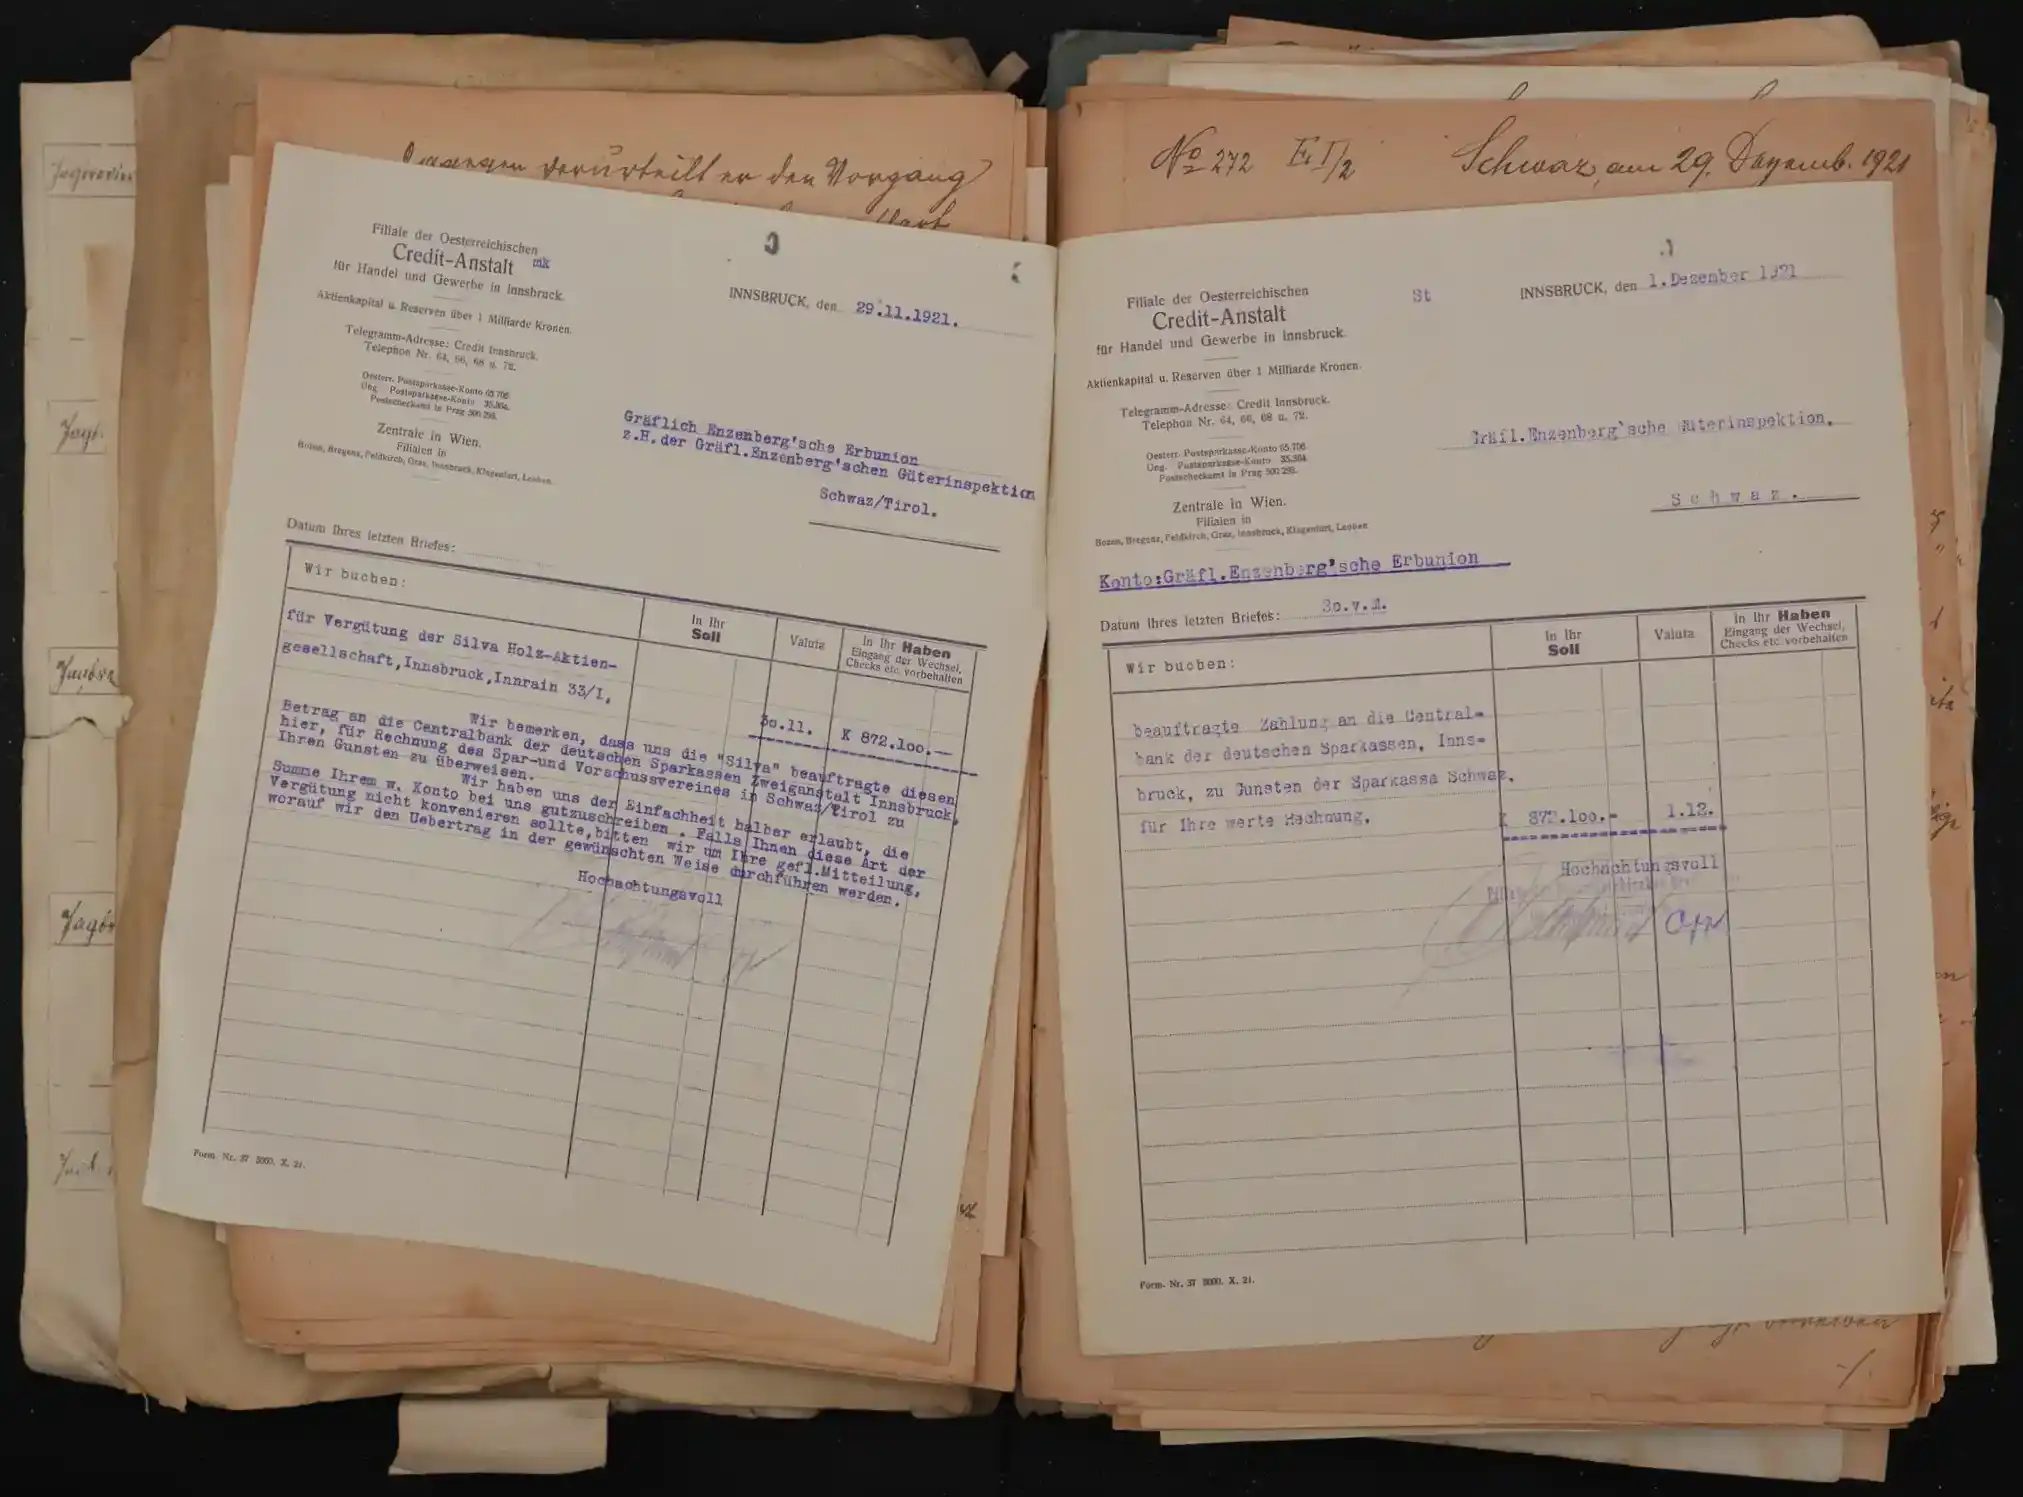 verurteilt er den Vorgang
Filiale der Oesterreichischen
Credit-Anstalt mk
für Handel und Gewerbe in Innsbruck.
Aktienkapital u. Reserven über 1 Milliarde Kronen.
Telegramm-Adresse: Credit Innsbruck.
Telephon Nr. 64, 66, 68 u. 72.
Oesterr. Postsparkasse-Konto 65.706
Ung. Postsparkasse-Konto 35.364.
Postscheckamt in Prag 500 293.
Zentrale in Wien.
Filialen in
Bozen, Bregenz, Feldkirch, Graz, Innsbruck, Klagenfurt, Leoben.
INNSBRUCK, den 29.11.1921.
Gräflich Enzenberg'sche Erbunion
z.H.der Gräfl.Enzenberg'schen Güterinspektion
Schwaz/Tirol.
Datum Ihres letzten Briefes:
Wir buchen:
In Ihr
Soll
Valuta
In Ihr Haben
Eingang der Wechsel,
Checks etc. vorbehalten
für Vergütung der Silva Holz-Aktien-
gesellschaft,Innsbruck,Innrain 33/I.
30.11. K 872.100.—
Wir bemerken, dass uns die "Silva" beauftragte diesen
Betrag an die Centralbank der deutschen Sparkassen Zweiganstalt Innsbruck,
hier, für Rechnung des Spar-und Vorschussvereines in Schwaz/Tirol zu
Ihren Gunsten zu überweisen.
Wir haben uns der Einfachheit halber erlaubt, die
Summe Ihrem w. Konto bei uns gutzuschreiben. Falls Ihnen diese Art der
Vergütung nicht konvenieren sollte,bitten wir um Ihre gefl.Mitteilung,
worauf wir den Uebertrag in der gewünschten Weise durchführen werden.
Hochachtungsvoll
Form. Nr. 37 3000. X. 21.
No 272 E I/2 Schwaz, am 29. Dezemb. 1921
Filiale der Oesterreichischen
Credit-Anstalt
für Handel und Gewerbe in Innsbruck.
Aktienkapital u. Reserven über 1 Milliarde Kronen.
Telegramm-Adresse: Credit Innsbruck.
Telephon Nr. 64, 66, 68 u. 72.
Oesterr. Postsparkasse-Konto 65.706
Ung. Postsparkasse-Konto 35.364
Postscheckamt in Prag 500 293.
Zentrale in Wien.
Filialen in
Bozen, Bregenz, Feldkirch, Graz, Innsbruck, Klagenfurt, Leoben
St
INNSBRUCK, den 1.Dezember 1921
Gräfl.Enzenberg'sche Güterinspektion.
Schwaz.
Konto:Gräfl.Enzenberg'sche Erbunion
Datum Ihres letzten Briefes: 3o.v.M.
Wir buchen:
In Ihr
Soll
Valuta
In Ihr Haben
Eingang der Wechsel,
Checks etc. vorbehalten
beauftragte Zahlung an die Central-
bank der deutschen Sparkassen, Inns-
bruck, zu Gunsten der Sparkassa Schwaz,
für Ihre werte Rechnung. K 872.100.- 1.12.
Hochachtungsvoll
Form. Nr. 37 3000. X. 21.